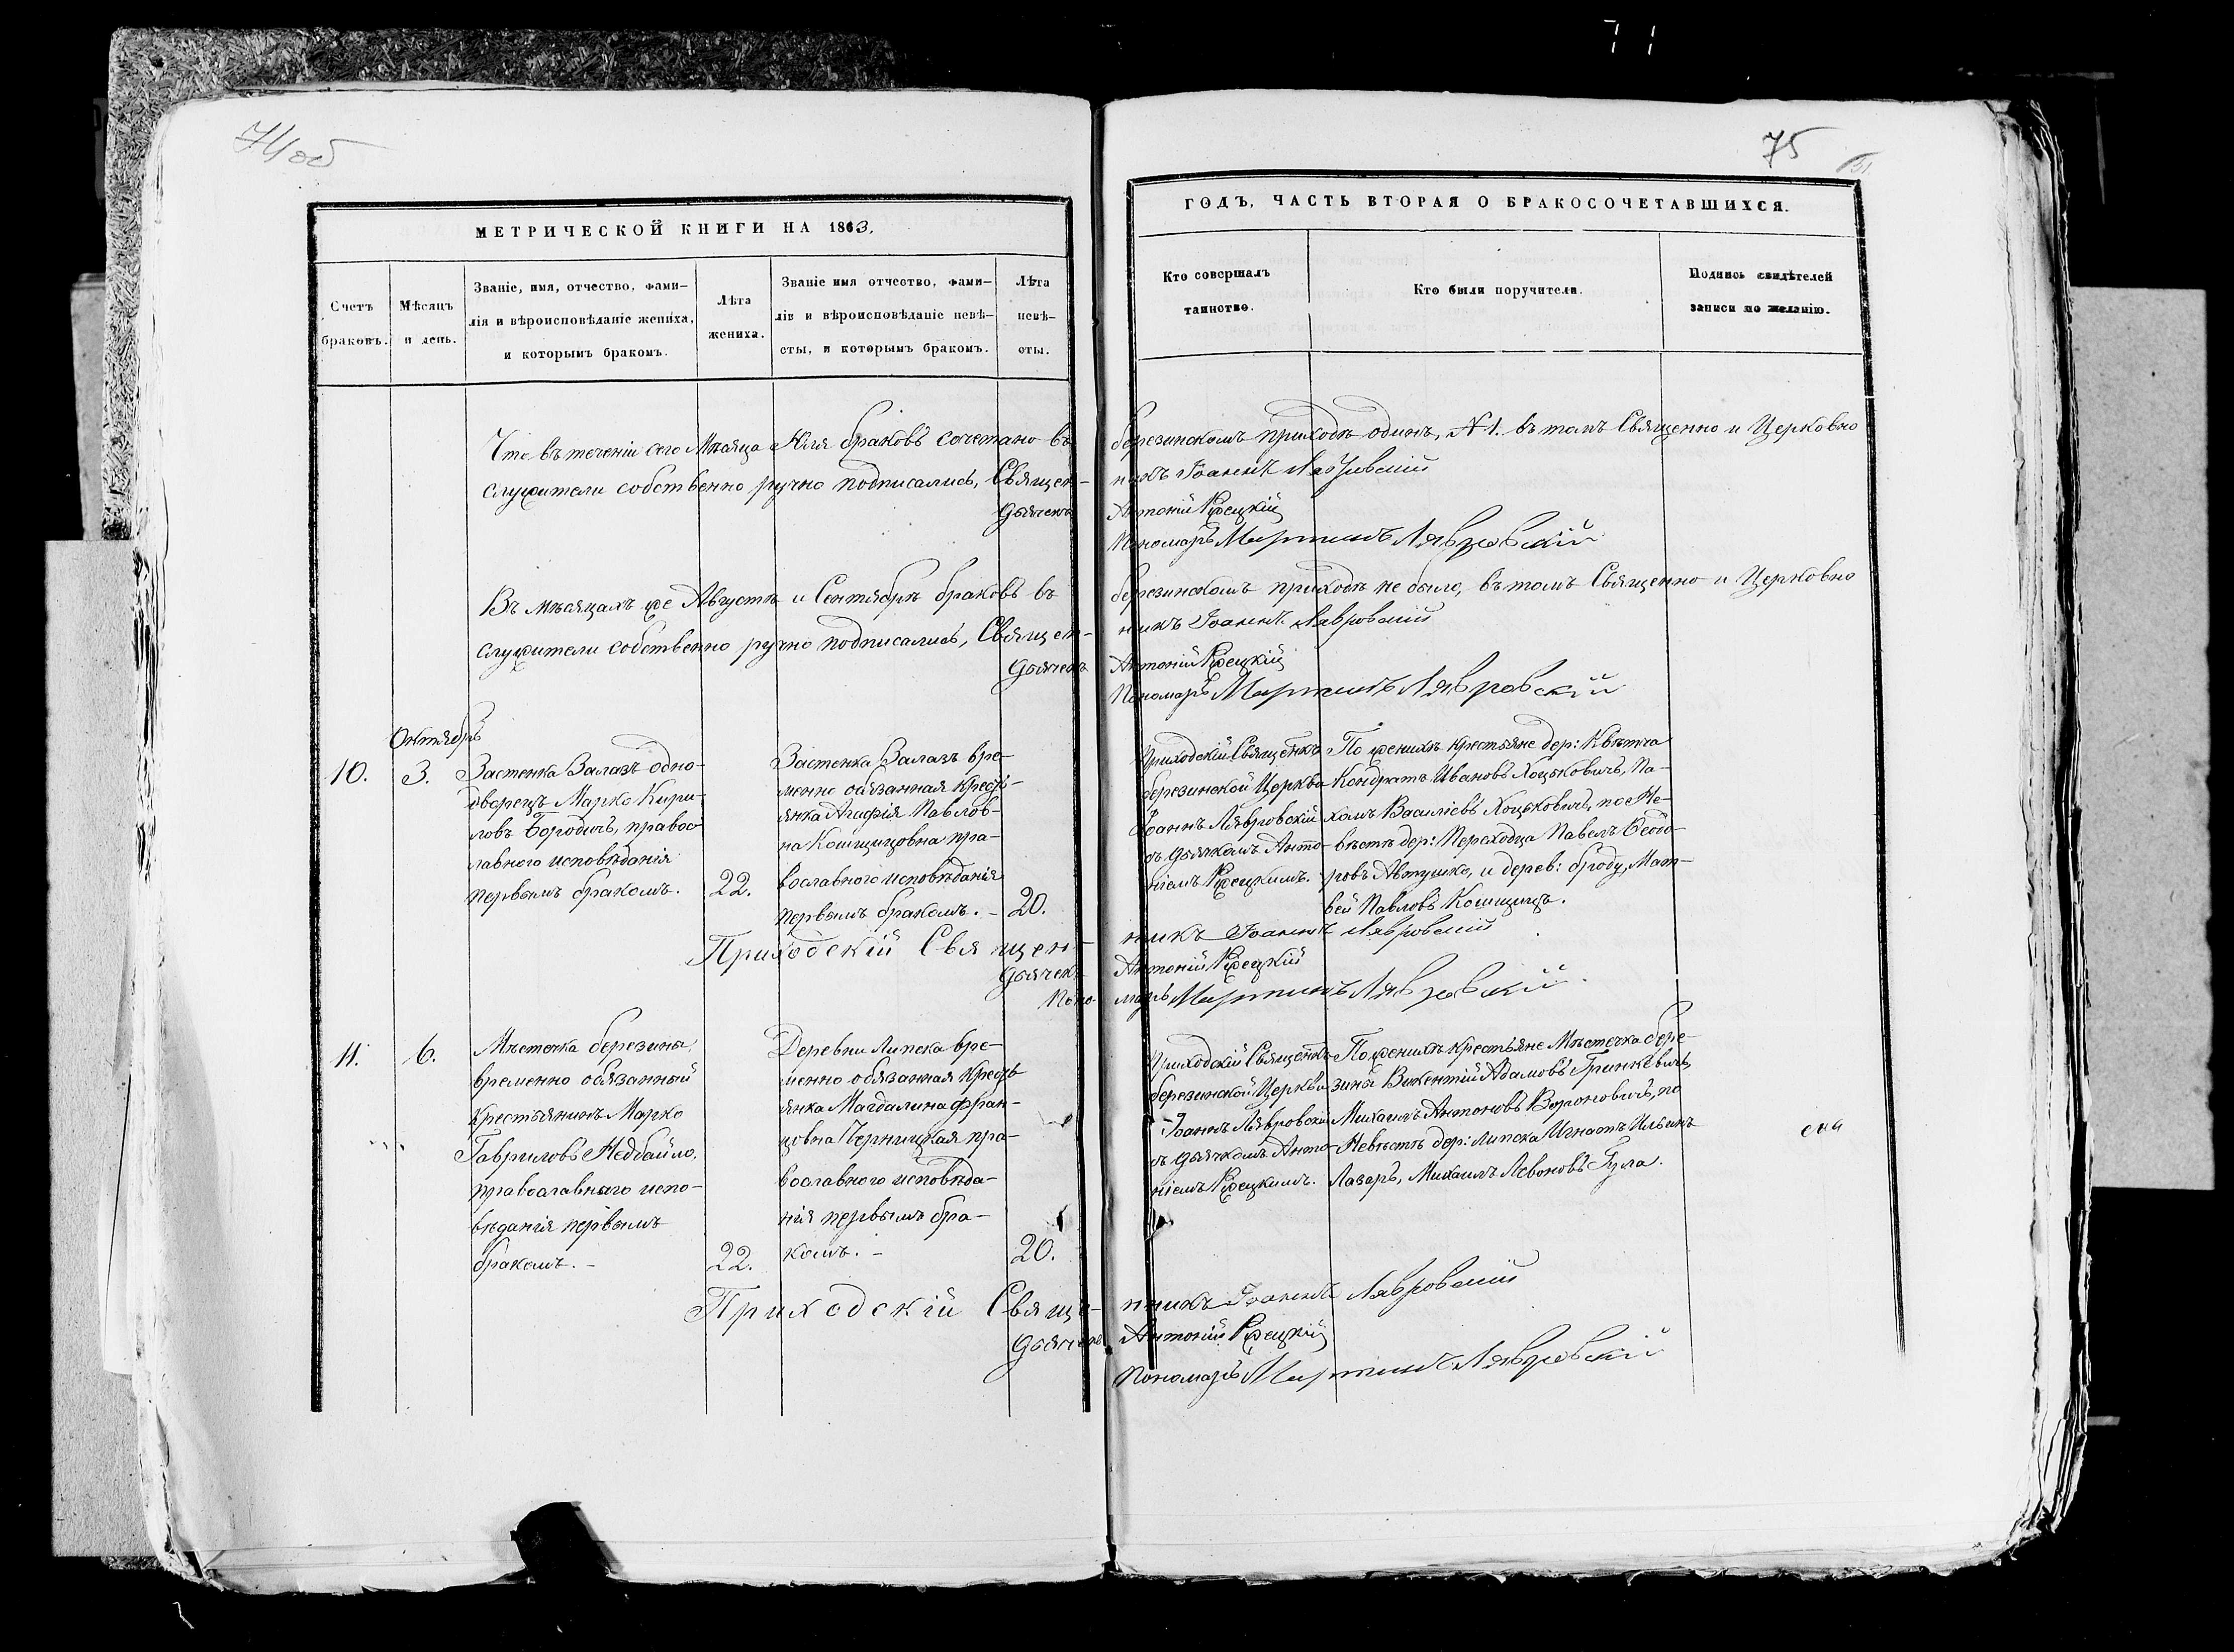 71
74 об
75
МЕТРИЧЕСКОЙ КНИГИ НА 1863.
Счетъ
браковъ.
Мѣсяцъ
и день.
Званіе, имя, отчество, фами-
лія и вѣроисповѣданіе жениха,
и которымъ бракомъ.
Лѣта
жениха.
Званіе имя отчество, фами-
лія и вѣроисповѣданіе невѣ-
сты, и которымъ бракомъ.
Лѣта
невѣ-
сты.
ГОДЪ, ЧАСТЬ ВТОРАЯ О БРАКОСОЧЕТАВШИХСЯ.
Кто совершалъ
таинство.
Кто были поручители.
Подпись свидѣтелей
записи по желанію.
Что въ теченіи сего Мѣсяца Юля браковъ сочетано въ березинскомъ приходѣ одинъ, N 1. въ томъ Священно и Церковно
служители собственно ручно подписались, Священ-никъ Іоаннъ Лавровскій
Дьячекъ Антоній Рѣецкій
Пономарь Мартинъ Лявровскій
Въ мѣсяцахъ же Августѣ и Сентябрѣ браковъ въ березинскомъ приходѣ не было, въ томъ Священно и Церковно
служители собственно ручно подписались, Священ-никъ Іоаннъ Лявровскій
Дьячекъ Антоній Рѣецкій
Пономарь Мартинъ Лявровскій
Октябрь
10.
3.
Застенка Валазъ одно-
дворецъ Марко Кири-
ловъ Бородичъ, правос-
лавного исповѣданія
первымъ бракомъ.
22.
Застенка Валазъ вре-
менно обязанная Кресть-
янка Агафія Павлов-
на Кошщицовна пра-
вославного исповѣданія
первымъ бракомъ. –
20.
Приходскій Священикъ
березинской Церкви
Іоаннъ Лявровскій
съ дьячкомъ Анто-
ніемъ Рѣецкимъ.
По женихѣ крестьяне дер: Квѣтча
Кондратъ Ивановъ Хоцьковичъ, Па-
хомъ Василіевъ Хоцьковичъ, по Не-
вѣстѣ дер: Переходца Павелъ Ѳеодо-
ровъ Автушко, и дерев: броду, Мат-
вей Павловъ Кошщицъ.
Приходскій Священ-никъ Іоаннъ Лявровскій
Дьячекъ Антоній Рѣецкій
Поно-марь Мартинъ Лявровскій.
11.
6.
Мѣстечка березины,
временно обязанный
крестьянинъ Марко
Гавриловъ Недбайло,
православнаго испо-
вѣданія первымъ
бракомъ. –
22.
Деревни Липска вре-
менно обязанная Кресть-
янка Магдалина Фран-
цовна Черницкая пра-
вославного исповѣда-
нія первымъ бра-
комъ. –
20.
Приходскій Священикъ
березинской Церкви
Іоаннъ Лявровскій
съ дьячкомъ Анто-
ніемъ Рѣецкимъ.
По женихѣ крестьяне Мѣстечка бере-
зины Викентій Адамовъ Гринкевичъ,
Михаилъ Антоновъ Вороновичъ, по
Невѣстѣ дер: Липска Игнатъ Ильинъ
Лазарь, Михаилъ Левоновъ Гузла.
Приходскій Свяще-нникъ Іоаннъ Лявровскій
Дьячекъ Антоній Рѣецкій
Пономарь Мартинъ Лявровскій